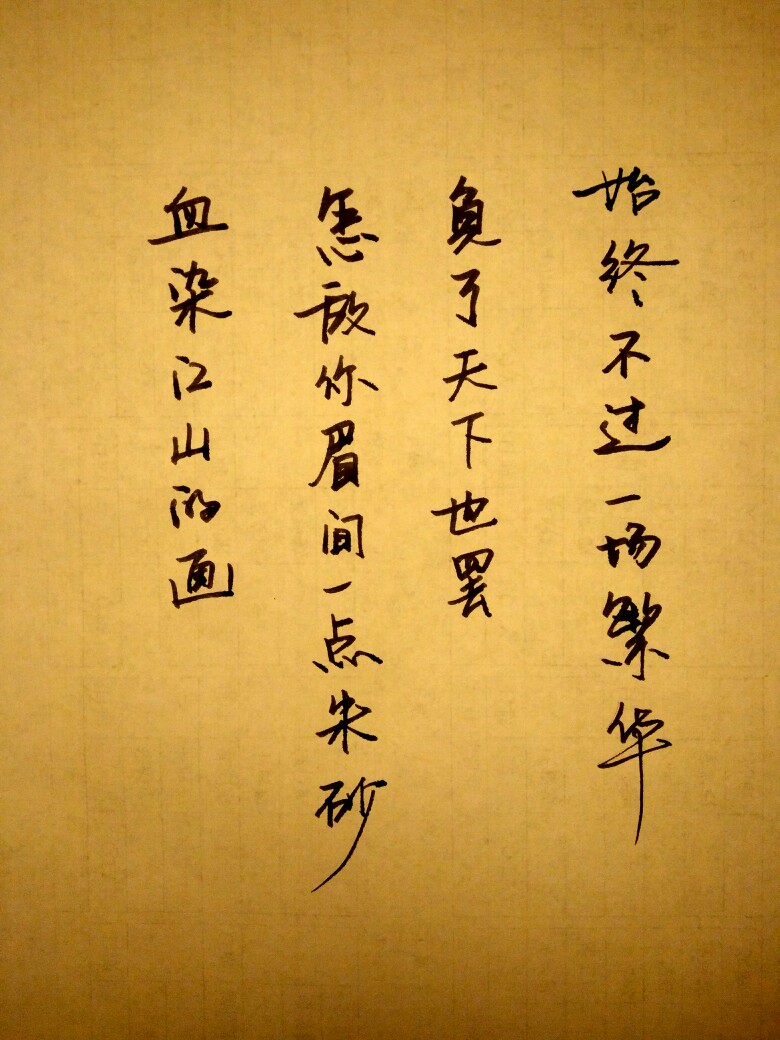 血染江山的画
怎敌你眉间一点朱砂
負了天下也罢
始终不过一场繁华